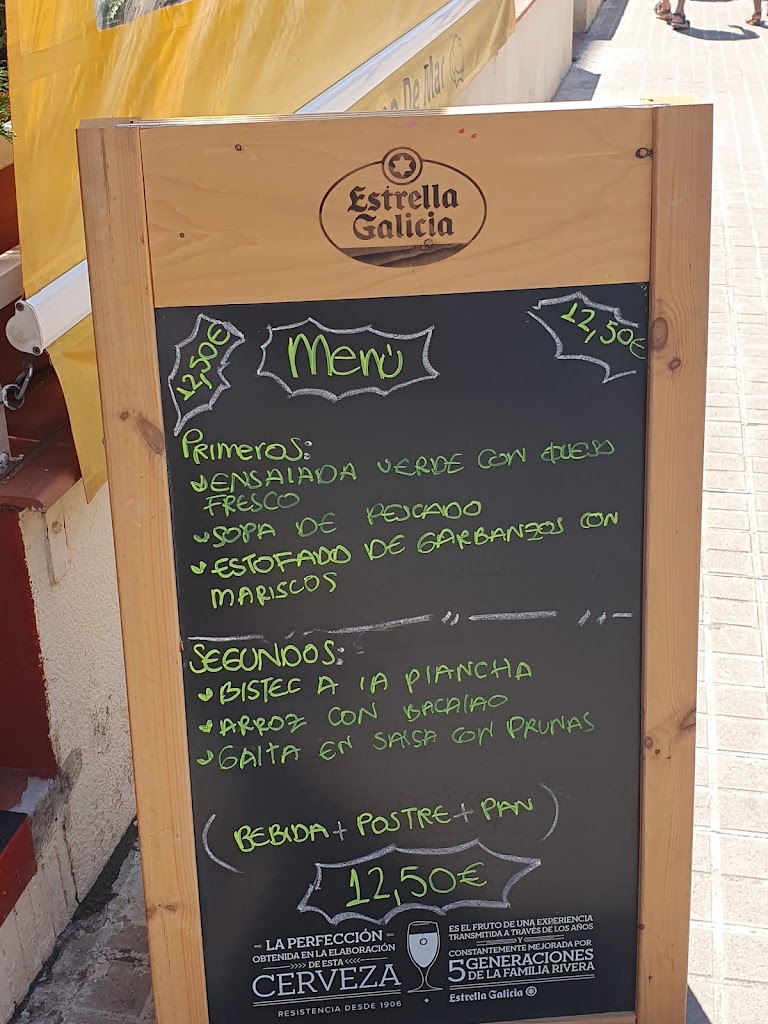 De Mar
Estrella
Galicia
12,50€
Menú
12,50€
PRIMEROS:
ENSALADA VERDE CON QUESO
FRESCO
SOPA DE PESCADO
ESTOFADO DE GARBANZOS CON
MARISCOS
SEGUNDOS:
BISTEC A LA PLANCHA
ARROZ CON BACALAO
GALTA EN SALSA CON PRUNAS
(BEBIDA + POSTRE + PAN)
12,50€
- LA PERFECCIÓN -
OBTENIDA EN LA ELABORACIÓN
>>>> DE ESTA <<<<
CERVEZA
RESISTENCIA DESDE 1906
ES EL FRUTO DE UNA EXPERIENCIA
TRANSMITIDA A TRAVÉS DE LOS AÑOS
Y
CONSTANTEMENTE MEJORADA POR
5 GENERACIONES
DE LA FAMILIA RIVERA
Estrella Galicia